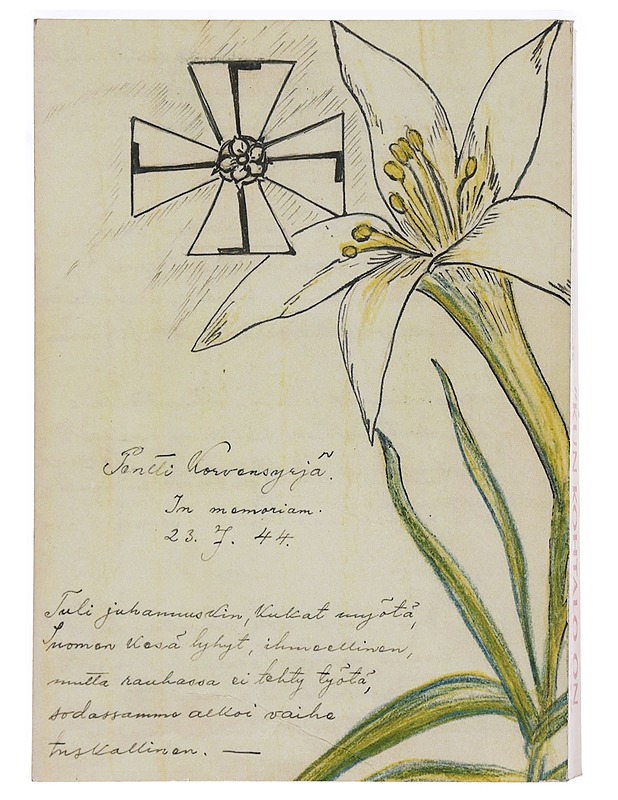 Pentti Korvensyrjä.
In memoriam.
23. 7. 44.
Tuli juhannuskin, kukat myötä,
Suomen kesä lyhyt, ihmeellinen,
mutta rauhassa ei tehty työtä,
sodassamme alkoi vaihe
tuskallinen. —
KUN KOHTALO ON